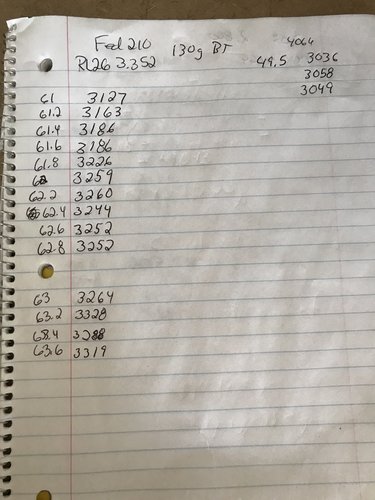 Fed 210 130g BT 4064
RL26 3.352 49.5 3036
3058
3049
61 3127
61.2 3163
61.4 3186
61.6 3186
61.8 3226
62 3259
62.2 3260
62.4 3244
62.6 3252
62.8 3252
63 3264
63.2 3328
63.6 3319